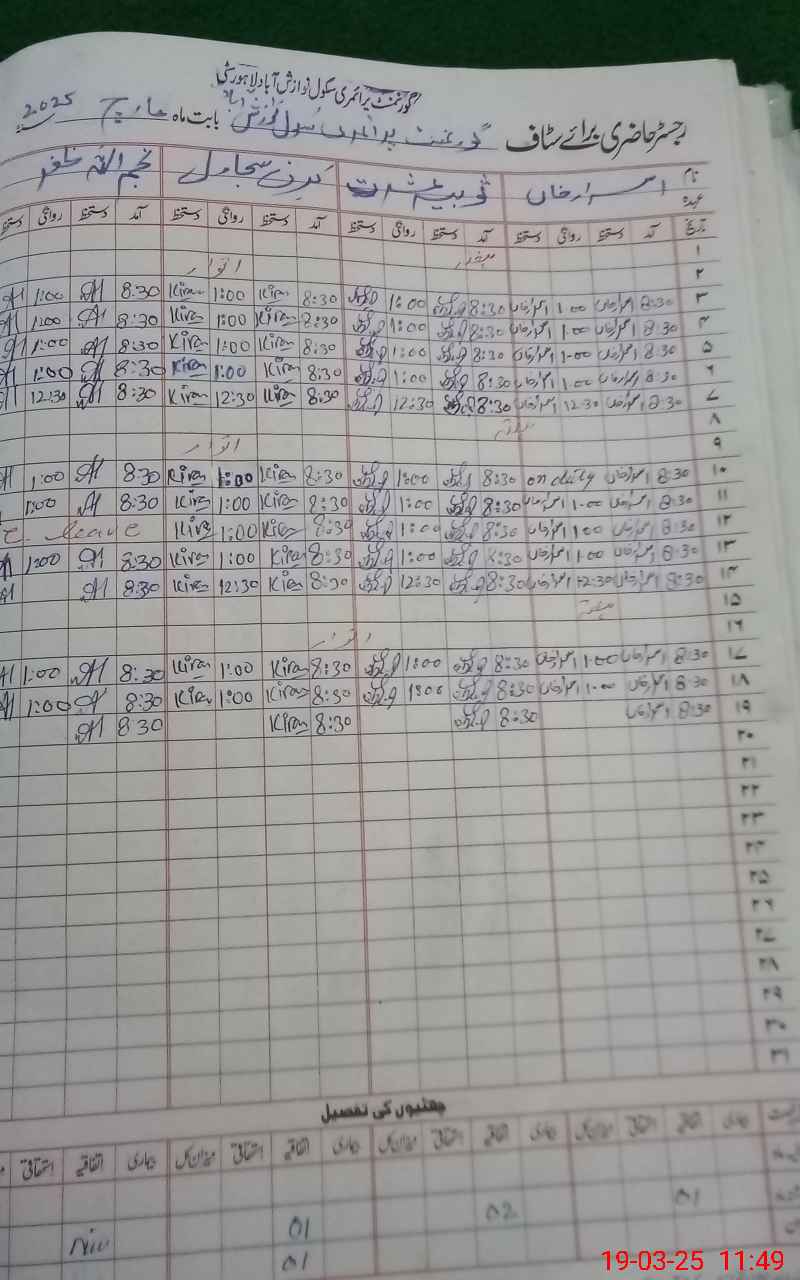 گورنمنٹ پرائمری سکول نوازش آباد لاہور سٹی
رجسٹر حاضری برائے سٹاف گورنمنٹ پرائمری سکول نوازش آباد بابت ماہ مارچ 2025
نام اسرار خاں ثوبیہ عشرت کرن سجاول نجم اللہ ظفر
عہدہ
تاریخ آمد دستخط روانگی دستخط آمد دستخط روانگی دستخط آمد دستخط روانگی دستخط آمد دستخط روانگی دستخط
۱ ہفتہ
۲ اتوار
۳ 8:30 اسرار خاں 1:00 اسرار خاں 8:30 1:00 8:30 Kiran 1:00 Kiran 8:30 1:00
۴ 8:30 اسرار خاں 1:00 اسرار خاں 8:30 1:00 8:30 Kiran 1:00 Kiran 8:30 1:00
۵ 8:30 اسرار خاں 1:00 اسرار خاں 8:30 1:00 8:30 Kiran 1:00 Kiran 8:30 1:00
۶ 8:30 اسرار خاں 1:00 اسرار خاں 8:30 1:00 8:30 Kiran 1:00 Kiran 8:30 1:00
۷ 8:30 اسرار خاں 12:30 اسرار خاں 8:30 12:30 8:30 Kiran 12:30 Kiran 8:30 12:30
۸ ہفتہ
۹ اتوار
۱۰ 8:30 اسرار خاں on duty 8:30 1:00 8:30 Kiran 1:00 Kiran 8:30 1:00
۱۱ 8:30 اسرار خاں 1:00 اسرار خاں 8:30 1:00 8:30 Kiran 1:00 Kiran 8:30 1:00
۱۲ 8:30 اسرار خاں 1:00 اسرار خاں 8:30 1:00 8:30 Kiran 1:00 Kiran leave
۱۳ 8:30 اسرار خاں 1:00 اسرار خاں 8:30 1:00 8:30 Kiran 1:00 Kiran 8:30 1:00
۱۴ 8:30 اسرار خاں 12:30 اسرار خاں 8:30 12:30 8:30 Kiran 12:30 Kiran 8:30
۱۵ ہفتہ
۱۶ اتوار
۱۷ 8:30 اسرار خاں 1:00 اسرار خاں 8:30 1:00 8:30 Kiran 1:00 Kiran 8:30 1:00
۱۸ 8:30 اسرار خاں 1:00 اسرار خاں 8:30 1:00 8:30 Kiran 1:00 Kiran 8:30 1:00
۱۹ 8:30 اسرار خاں 8:30 8:30 Kiran 8:30
۲۰
۲۱
۲۲
۲۳
۲۴
۲۵
۲۶
۲۷
۲۸
۲۹
۳۰
۳۱
چھٹیوں کی تفصیل
بیماری اتفاقیہ استحقاقی میزان کل بیماری اتفاقیہ استحقاقی میزان کل بیماری اتفاقیہ استحقاقی میزان کل بیماری اتفاقیہ استحقاقی
01
02
01 Nil
01
19-03-25 11:49